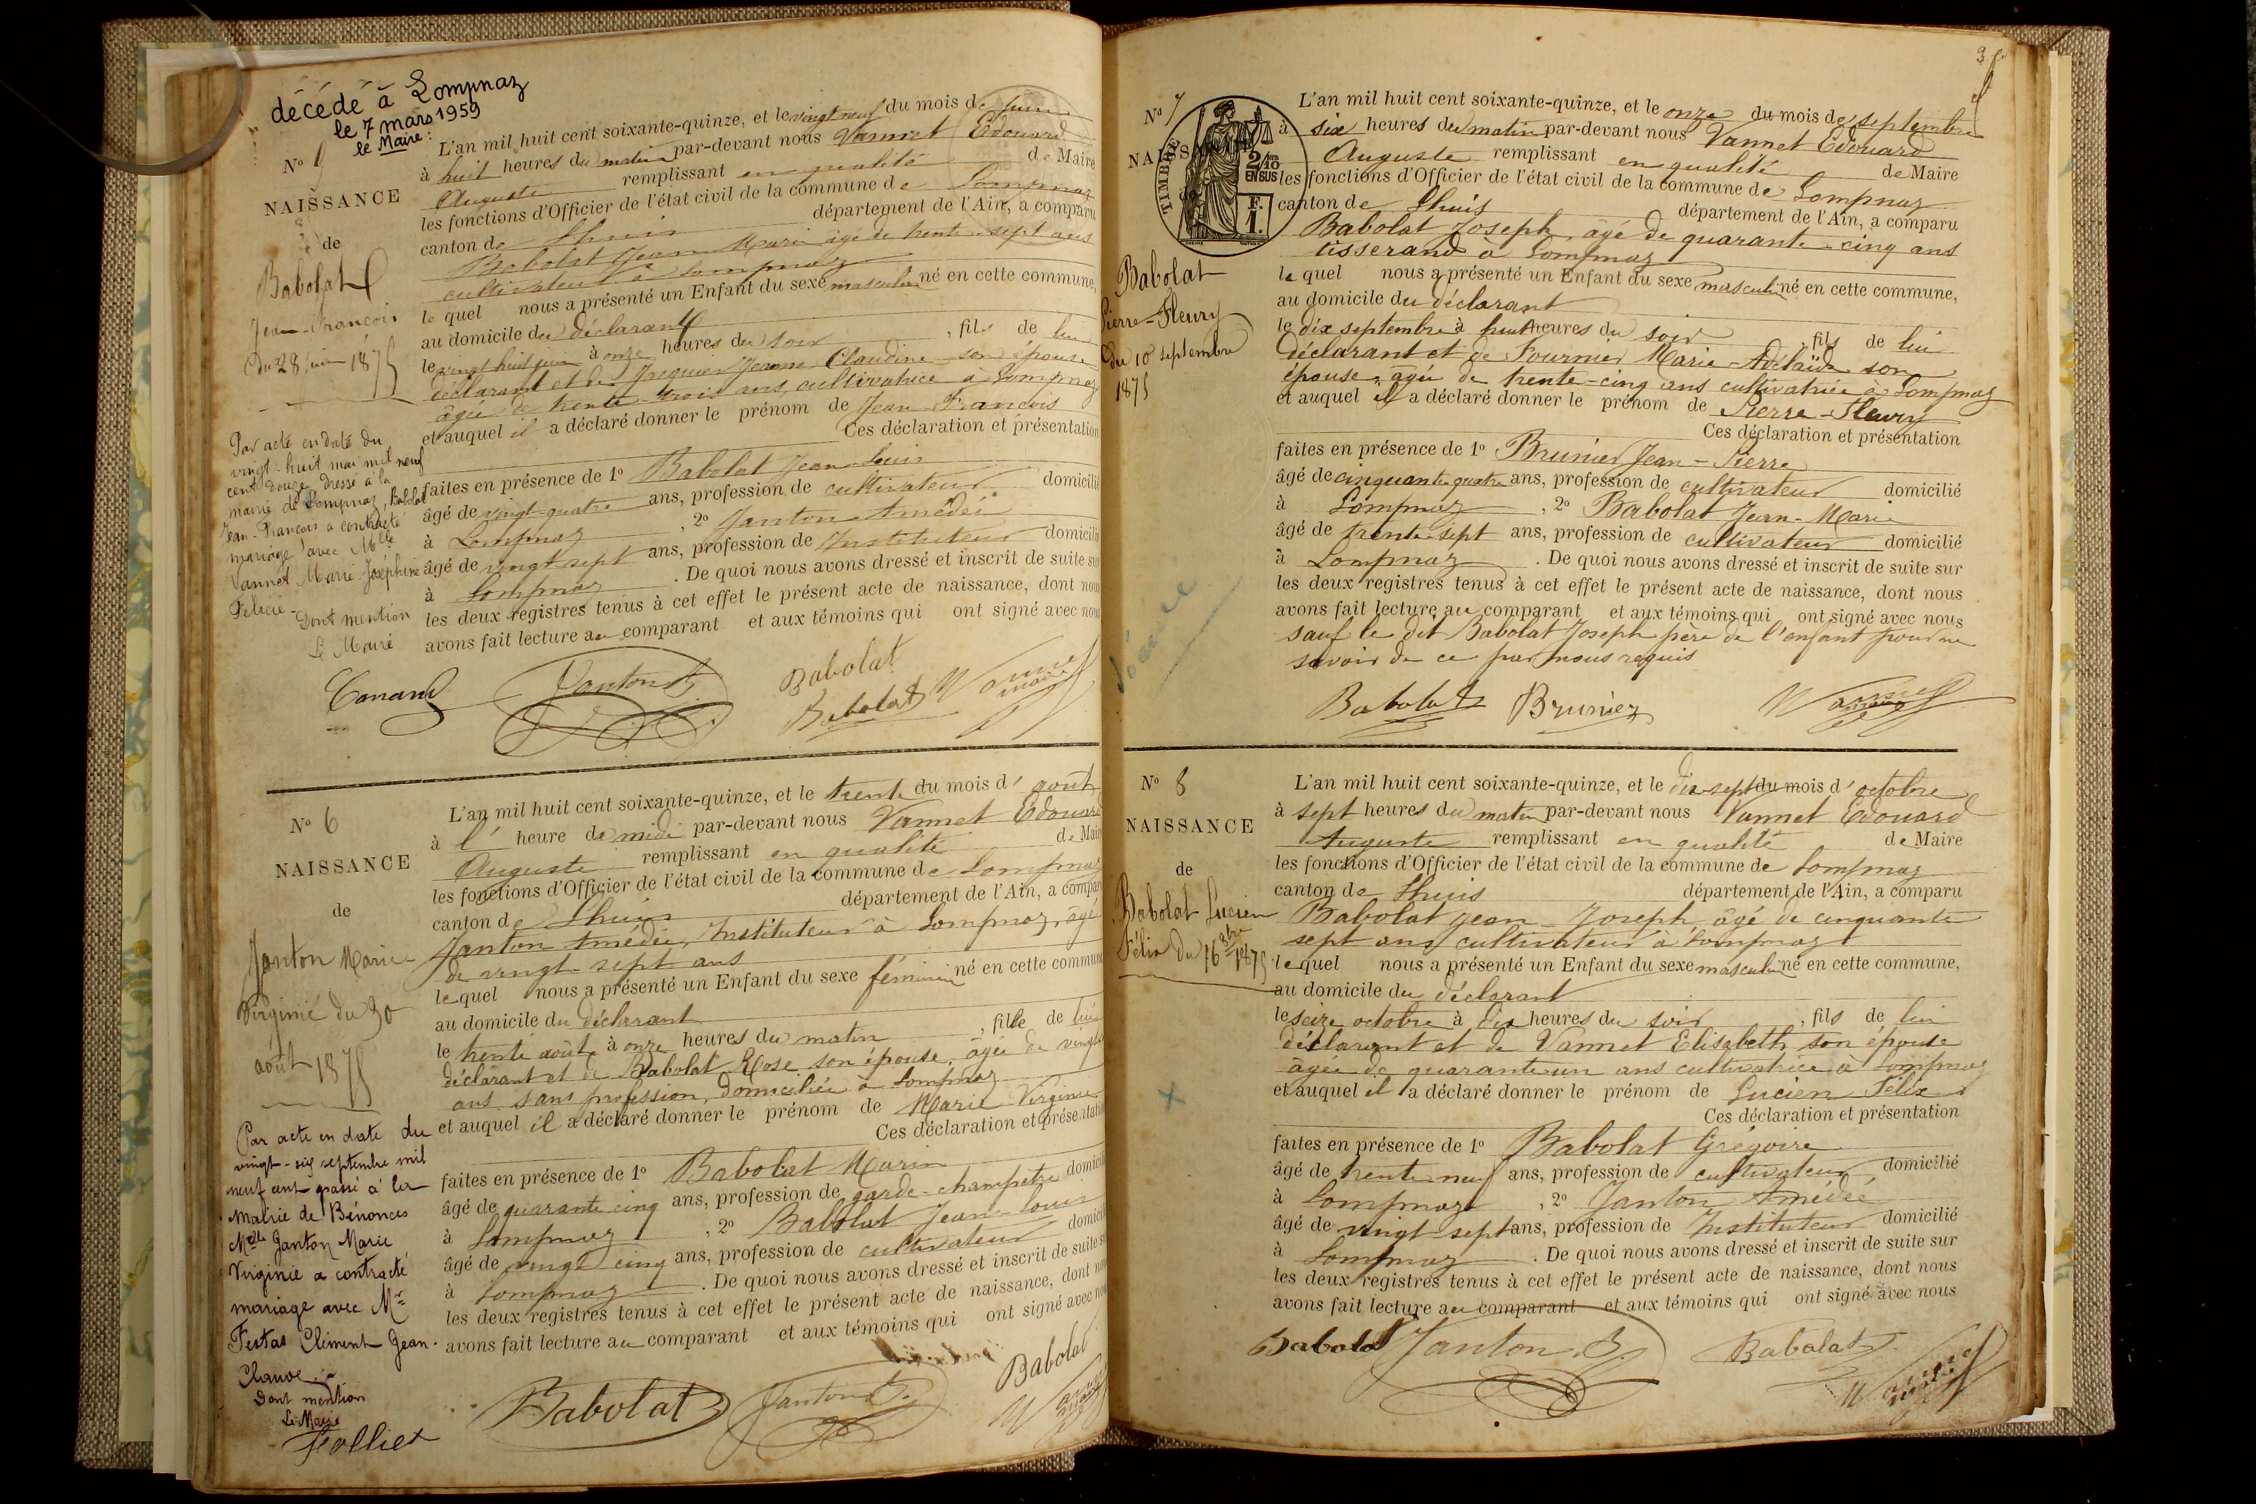 décédé à Lompnaz
le 7 mars 1959
le Maire :
N°
NAISSANCE
de
Babolat
Jean-François
du 28 juin 1875
Par acte en date du
vingt-huit mai mil neuf
cent douze dressé à la
mairie de Lompnaz, Babolat
Jean-François a contracté
mariage avec Mlle
Vannet Marie Joséphine
Félicie
Dont mention
Le Maire
L'an mil huit cent soixante-quinze, et le vingt neuf du mois de juin
à huit heures du matin par-devant nous Vannet Edouard
Auguste remplissant en qualité de Maire
les fonctions d'Officier de l'état civil de la commune de Lompnaz
canton de Lhuis département de l'Ain, a comparu
Babolat Jean Marie âgé de trente-sept ans
cultivateur à Lompnaz
lequel nous a présenté un Enfant du sexe masculin né en cette commune,
au domicile du déclarant
le vingt huit juin à onze heures du soir, fils de lui
déclarant et de Jacquier Jeanne Claudine son épouse
âgée de trente-trois ans, cultivatrice à Lompnaz
et auquel il a déclaré donner le prénom de Jean François
Ces déclaration et présentation
faites en présence de 1° Babolat Jean-Louis
âgé de vingt-quatre ans, profession de cultivateur domicilié
à Lompnaz, 2° Janton Amédée
âgé de vingt sept ans, profession de Instituteur domicilié
à Lompnaz. De quoi nous avons dressé et inscrit de suite sur
les deux registres tenus à cet effet le présent acte de naissance, dont nous
avons fait lecture au comparant et aux témoins qui ont signé avec nous
Janton A. Babolat
Babolat Vannet
maire
N° 6
NAISSANCE
de
Janton Marie
Virginie du 30
août 1875
Par acte en date du
vingt-six septembre mil
neuf cent passé à la
Mairie de Bénonces
Mlle Janton Marie
Virginie a contracté
mariage avec Mr
Festas Clément Jean-
Claude
Dont mention
Le Maire
L'an mil huit cent soixante-quinze, et le trente du mois d'août
à l' heure de midi par-devant nous Vannet Edouard
Auguste remplissant en qualité de Maire
les fonctions d'Officier de l'état civil de la commune de Lompnaz
canton de Lhuis département de l'Ain, a comparu
Janton Amédée, Instituteur à Lompnaz, âgé
de vingt-sept ans
lequel nous a présenté un Enfant du sexe féminin né en cette commune
au domicile du déclarant
le trente août à onze heures du matin, fille de lui
déclarant et de Babolat Rose son épouse, âgée de vingt
ans sans profession, domiciliée à Lompnaz
et auquel il a déclaré donner le prénom de Marie Virginie
Ces déclaration et présentation
faites en présence de 1° Babolat Marin
âgé de quarante cinq ans, profession de garde-champêtre domicilié
à Lompnaz, 2° Babolat Jean-Louis
âgé de vingt cinq ans, profession de cultivateur domicilié
à Lompnaz. De quoi nous avons dressé et inscrit de suite sur
les deux registres tenus à cet effet le présent acte de naissance, dont nous
avons fait lecture au comparant et aux témoins qui ont signé avec nous
Babolat Janton A. Babolat
Vannet
maire
N° 7
NAISS
TIMBRE
2/10
EN SUS
F.
1.
Babolat
Pierre-Fleury
du 10 septembre
1875
L'an mil huit cent soixante-quinze, et le onze du mois de septembre
à six heures du matin par-devant nous Vannet Edouard
Auguste remplissant en qualité de Maire
les fonctions d'Officier de l'état civil de la commune de Lompnaz
canton de Lhuis département de l'Ain, a comparu
Babolat Joseph, âgé de quarante-cinq ans
tisserand à Lompnaz
lequel nous a présenté un Enfant du sexe masculin né en cette commune,
au domicile du déclarant
le dix septembre à huit heures du soir, fils de lui
déclarant et de Fournier Marie-Adélaïde son
épouse, âgée de trente-cinq ans cultivatrice à Lompnaz
et auquel il a déclaré donner le prénom de Pierre-Fleury
Ces déclaration et présentation
faites en présence de 1° Brunier Jean-Pierre
âgé de cinquante quatre ans, profession de cultivateur domicilié
à Lompnaz, 2° Babolat Jean-Marie
âgé de trente-sept ans, profession de cultivateur domicilié
à Lompnaz. De quoi nous avons dressé et inscrit de suite sur
les deux registres tenus à cet effet le présent acte de naissance, dont nous
avons fait lecture au comparant et aux témoins qui ont signé avec nous
sauf le dit Babolat Joseph père de l'enfant pour ne
savoir de ce par nous requis
Babolat Brunier Vannet
maire
N° 8
NAISSANCE
de
Babolat Lucien
Félix du 16 8bre 1875
L'an mil huit cent soixante-quinze, et le dix-sept du mois d'octobre
à sept heures du matin par-devant nous Vannet Edouard
Auguste remplissant en qualité de Maire
les fonctions d'Officier de l'état civil de la commune de Lompnaz
canton de Lhuis département de l'Ain, a comparu
Babolat Jean-Joseph, âgé de cinquante
sept ans, cultivateur à Lompnaz
lequel nous a présenté un Enfant du sexe masculin né en cette commune,
au domicile du déclarant
le seize octobre à dix heures du soir, fils de lui
déclarant et de Vannet Elisabeth, son épouse
âgée de quarante un ans cultivatrice à Lompnaz
et auquel il a déclaré donner le prénom de Lucien Félix
Ces déclaration et présentation
faites en présence de 1° Babolat Grégoire
âgé de trente neuf ans, profession de cultivateur domicilié
à Lompnaz, 2° Janton Amédée
âgé de vingt sept ans, profession de Instituteur domicilié
à Lompnaz. De quoi nous avons dressé et inscrit de suite sur
les deux registres tenus à cet effet le présent acte de naissance, dont nous
avons fait lecture au comparant et aux témoins qui ont signé avec nous
Babolat Janton A. Babolat
Vannet